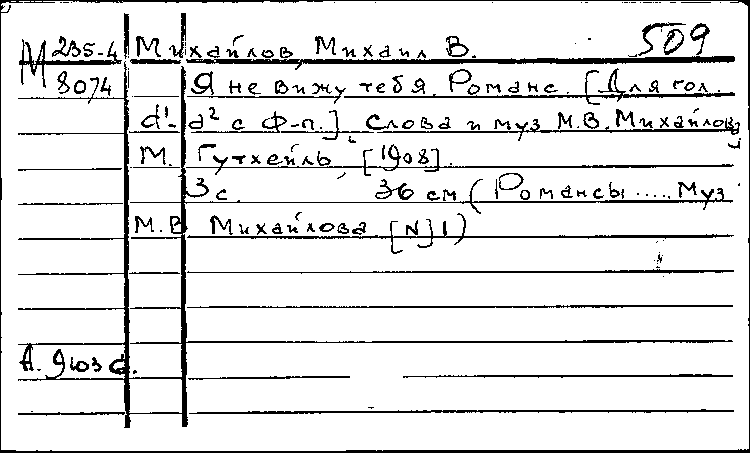 М 235-4 Михайлов, Михаил В. 509
8074 Я не вижу тебя. Романс. [Для гол.
d¹-d² с ф-п.] Слова и муз М.В. Михайлова
М. Гутхейль, [1908].
3 с. 36 см (Романсы ..... Муз
М.В Михайлова [N] 1)